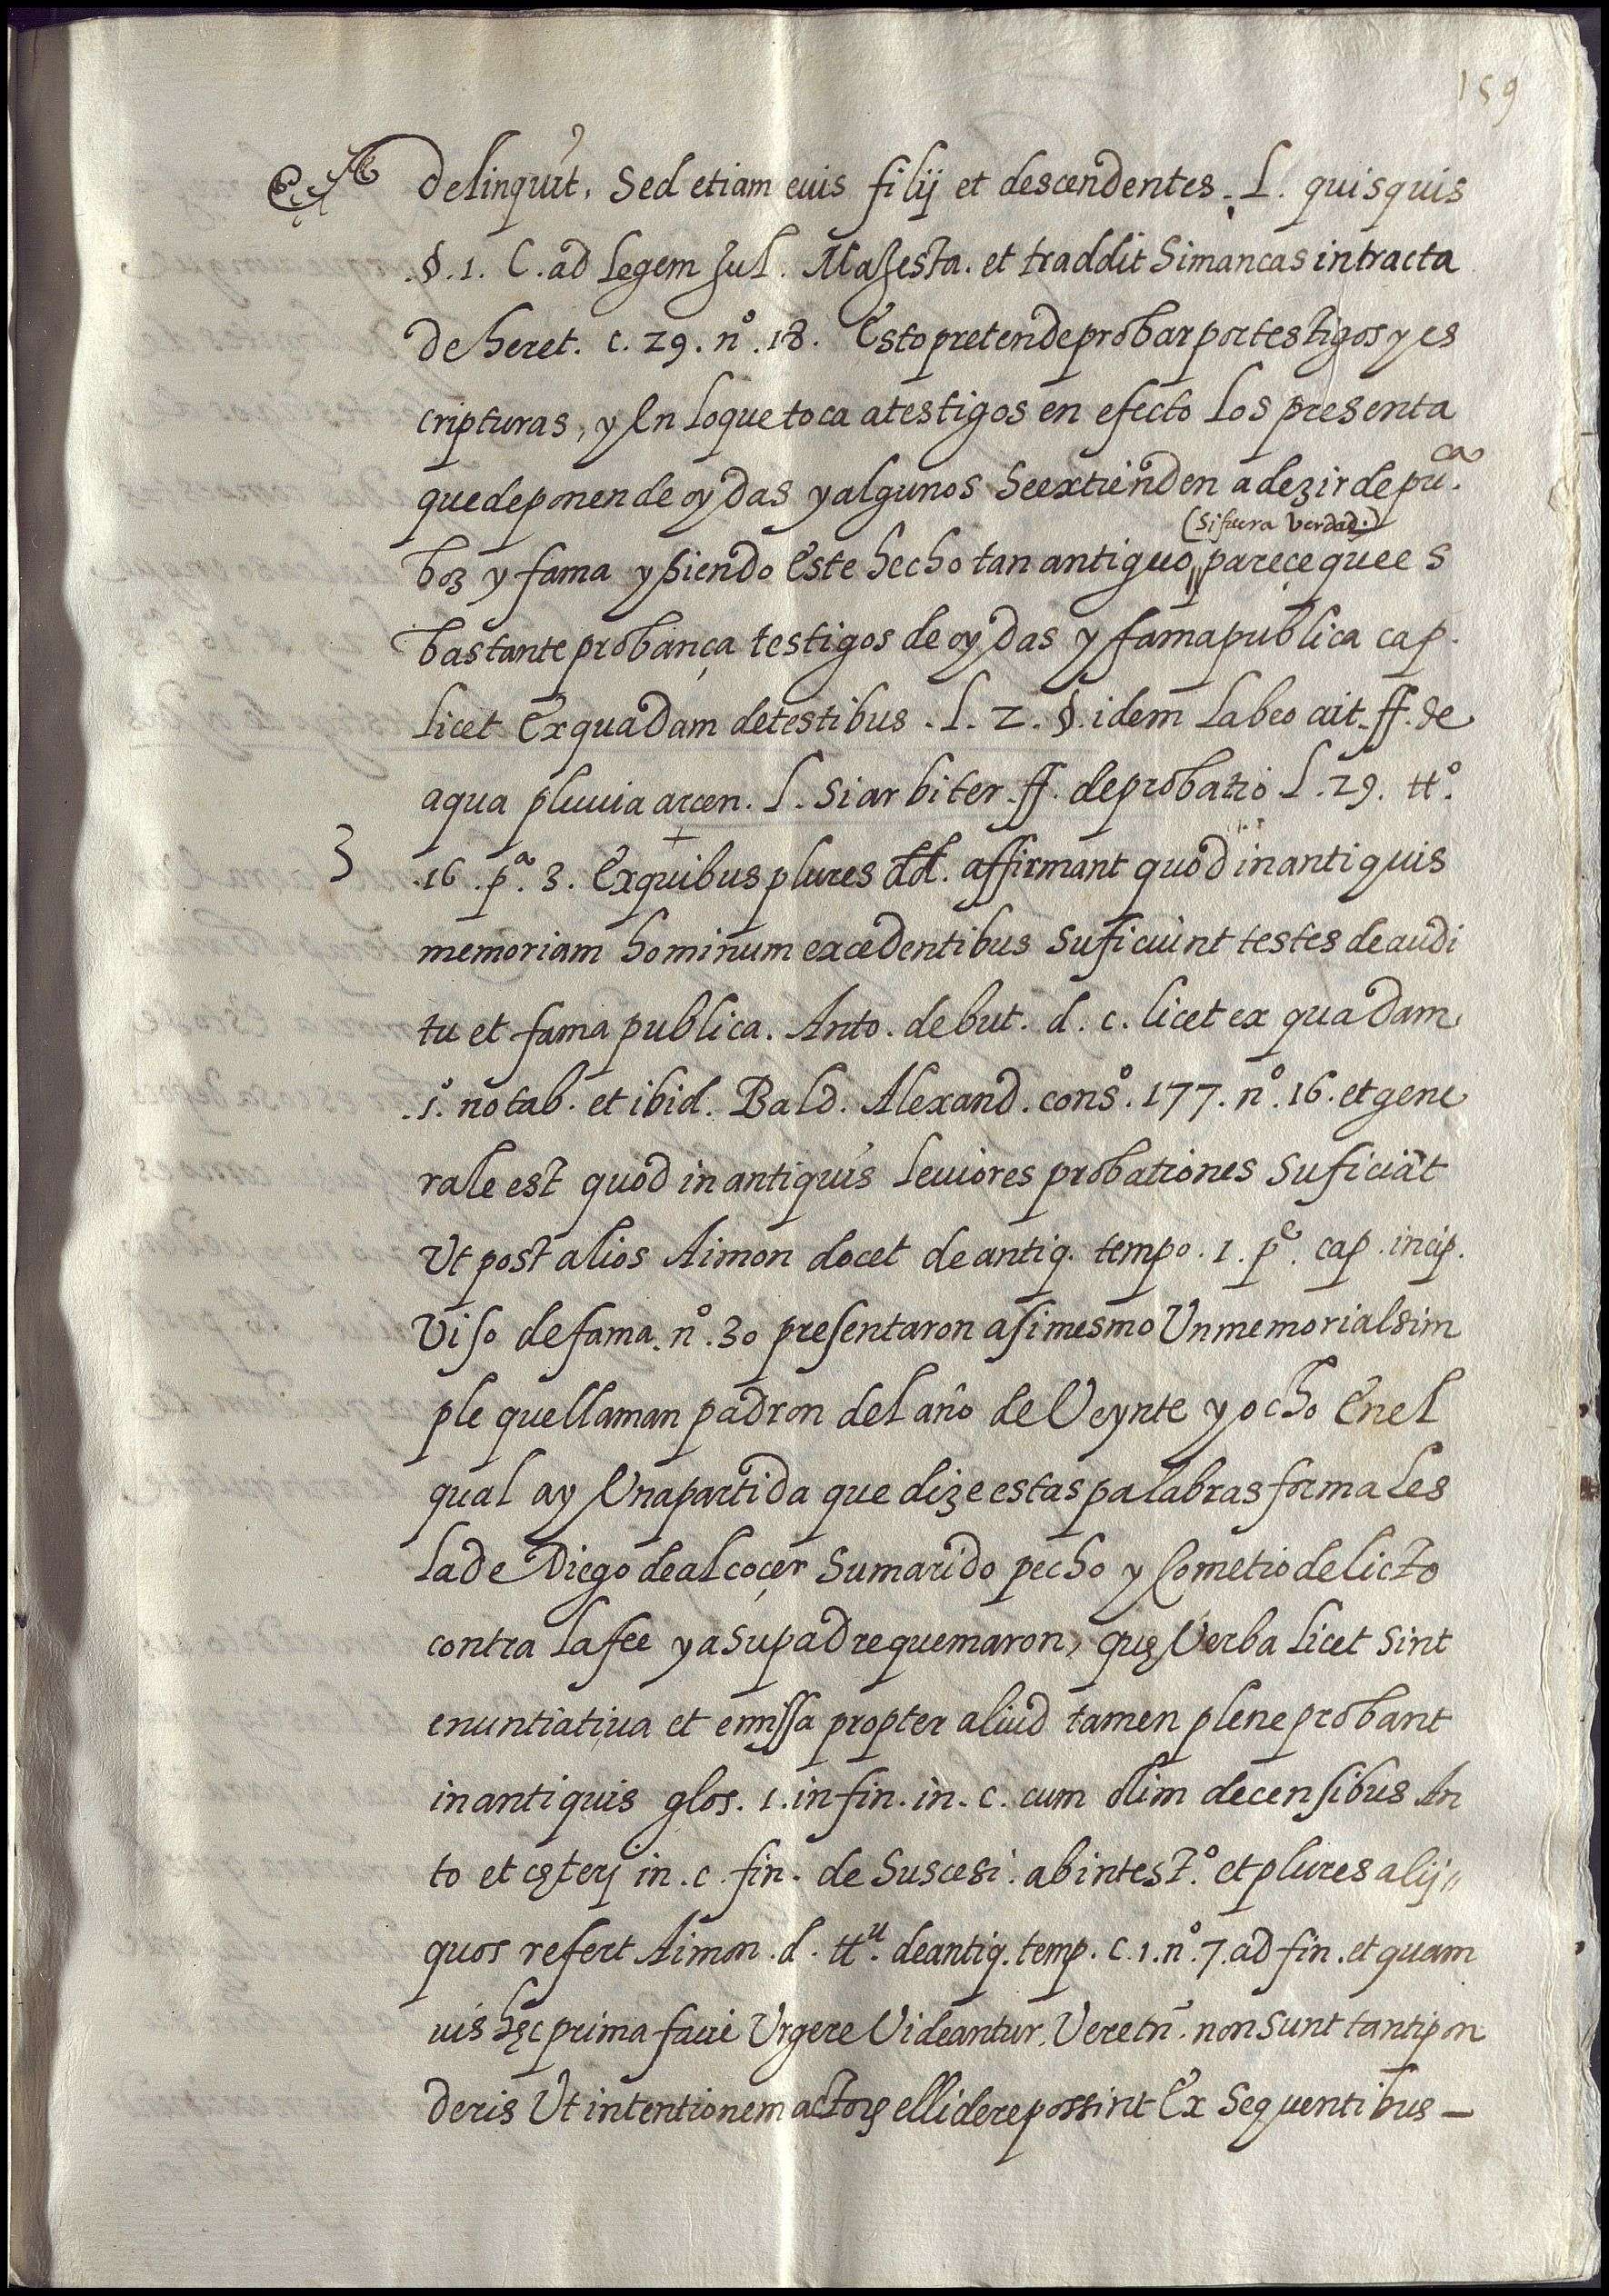 159
delinquit, Sed etiam euis filij et descendentes. L. quisquis
.§.1. C. ad Legem Jul. Majesta. et traddit Simancas in tracta
de heret. c. 29. nº. 18. Esto pretende probar por testigos y es
cripturas, y En lo que toca a testigos en efecto los presenta
que deponen de oydas y algunos Se extienden a dezir de pu.ca
(Si fuera verdad.)
boz y fama y siendo Este hecho tan antiguo,, pareçe que es
bastante probança testigos de oydas y fama publica cap.
licet Ex quadam de testibus. L. 2. §. idem Labeo ait. ff. de
aqua pluuia arcen. L. Si arbiter. ff. de probatio L. 29. ttº.
3 .16. pª. 3. Ex quibus plures dd. affirmant quod in antiquis
memoriam hominum excedentibus Suficiunt testes de audi
tu et fama publica. Anto. de but. d. c. licet ex quadam
.1º. notab. et ibid. Bald. Alexand. consº. 177. nº. 16. et gene
rale est quod in antiquis leuiores probationes Suficiãt
Vt post alios Aimon docet de antiq. tempo. 1. pe. cap. incip.
Viso de fama. nº. 30 presentaron asimesmo Un memorial sim
ple que llaman padron del año de Veynte y ocho En el
qual ay Una partida que dize estas palabras formales
la de Diego de alcoçer Su marido pecho y Cometio delicto
contra la fee y a Su padre quemaron, quę Verba licet Sint
enuntiatiua et emissa propter aliud tamen plene probant
in antiquis glos. 1. in fin. in. c. cum olim de censibus An
to et cęterj in. c. fin. de Suscesi. ab intestº. et plures alij,,
quos refert Aimon. d. ttu. de antiq. temp. c. 1. nº. 7. ad fin. et quam
uis hęc prima facie Vrgere Videantur. Vere tñ. non Sunt tanti pon
deris Vt intentionem actorę ellidere possint Ex Sequentibus —